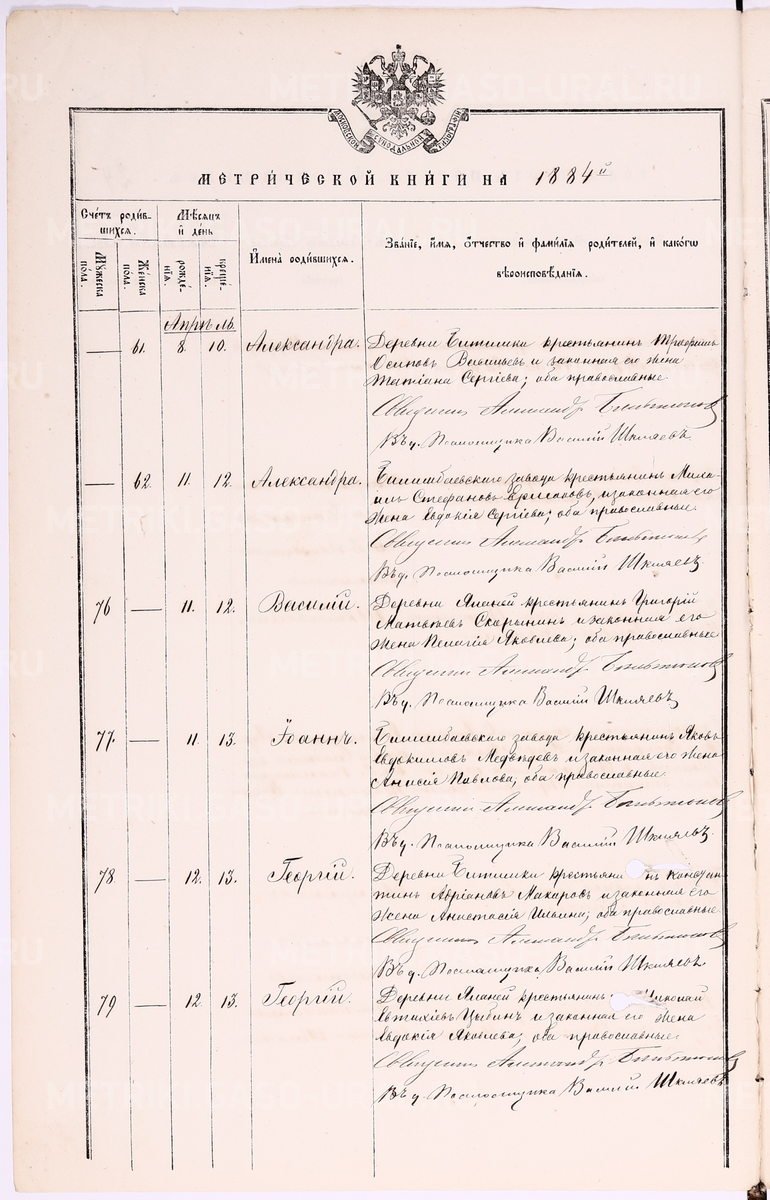 МОСКОВСКОЙ СѴНОДАЛЬНОЙ
МЕТРИ́ЧЕСКОЙ КНИ́ГИ НА 1884й
Сче́тъ роди́в-
шихся.
Мѣ́сяцъ
и҆ де́нь
Имена̀ роди́вшихся.
Зва́нїе, и҆́мя, ѻ҆́тчество и҆ фами́лїя роди́телей, и҆ како́гѡ
вѣроисповѣ́данїя.
Мꙋ́жеска
по́ла.
Же́нска
по́ла.
рожде́-
нїя.
креще́-
нїя.
Апрѣль.
— 61. 8. 10. Александра. Деревни Битимки крестьянинъ Трофимъ
Осиповъ Васильевъ и законная его жена
Татіана Сергіева; оба православные.
Священникъ Александръ
В. д. Псаломщика Василій Шкляевъ
— 62. 11. 12. Александра. Билимбаевскаго завода крестьянинъ Миха-
илъ Стефановъ Ермаковъ, и законная его
жена Евдокія Сергіева; оба православные.
Священникъ Александръ
В. д. Псаломщика Василій Шкляевъ
76 — 11. 12. Василій. Деревни крестьянинъ Григорій
Матвѣевъ Скорынинъ и законная его
жена Пелагія Яковлева; оба православные
Священникъ Александръ
В. д. Псаломщика Василій Шкляевъ
77. — 11. 13. Іоаннъ. Билимбаевскаго завода крестьянинъ Яковъ
Евдокимовъ Медвѣдевъ и законная его жена
Анисія Павлова, оба православные.
Священникъ Александръ
В. д. Псаломщика Василій Шкляевъ
78 — 12. 13. Георгій. Деревни Битимки крестьянинъ Констан-
тинъ Адріановъ Макаровъ и законная его
жена Анастасія Ильина; оба православные.
Священникъ Александръ
В. д. Псаломщика Василій Шкляевъ
79 — 12. 13. Георгій. Деревни крестьянинъ Николай
Евтихіевъ Цыбинъ и законная его жена
Евдокія Яковлева; оба православные.
Священникъ Александръ
В. д. Псаломщика Василій Шкляевъ